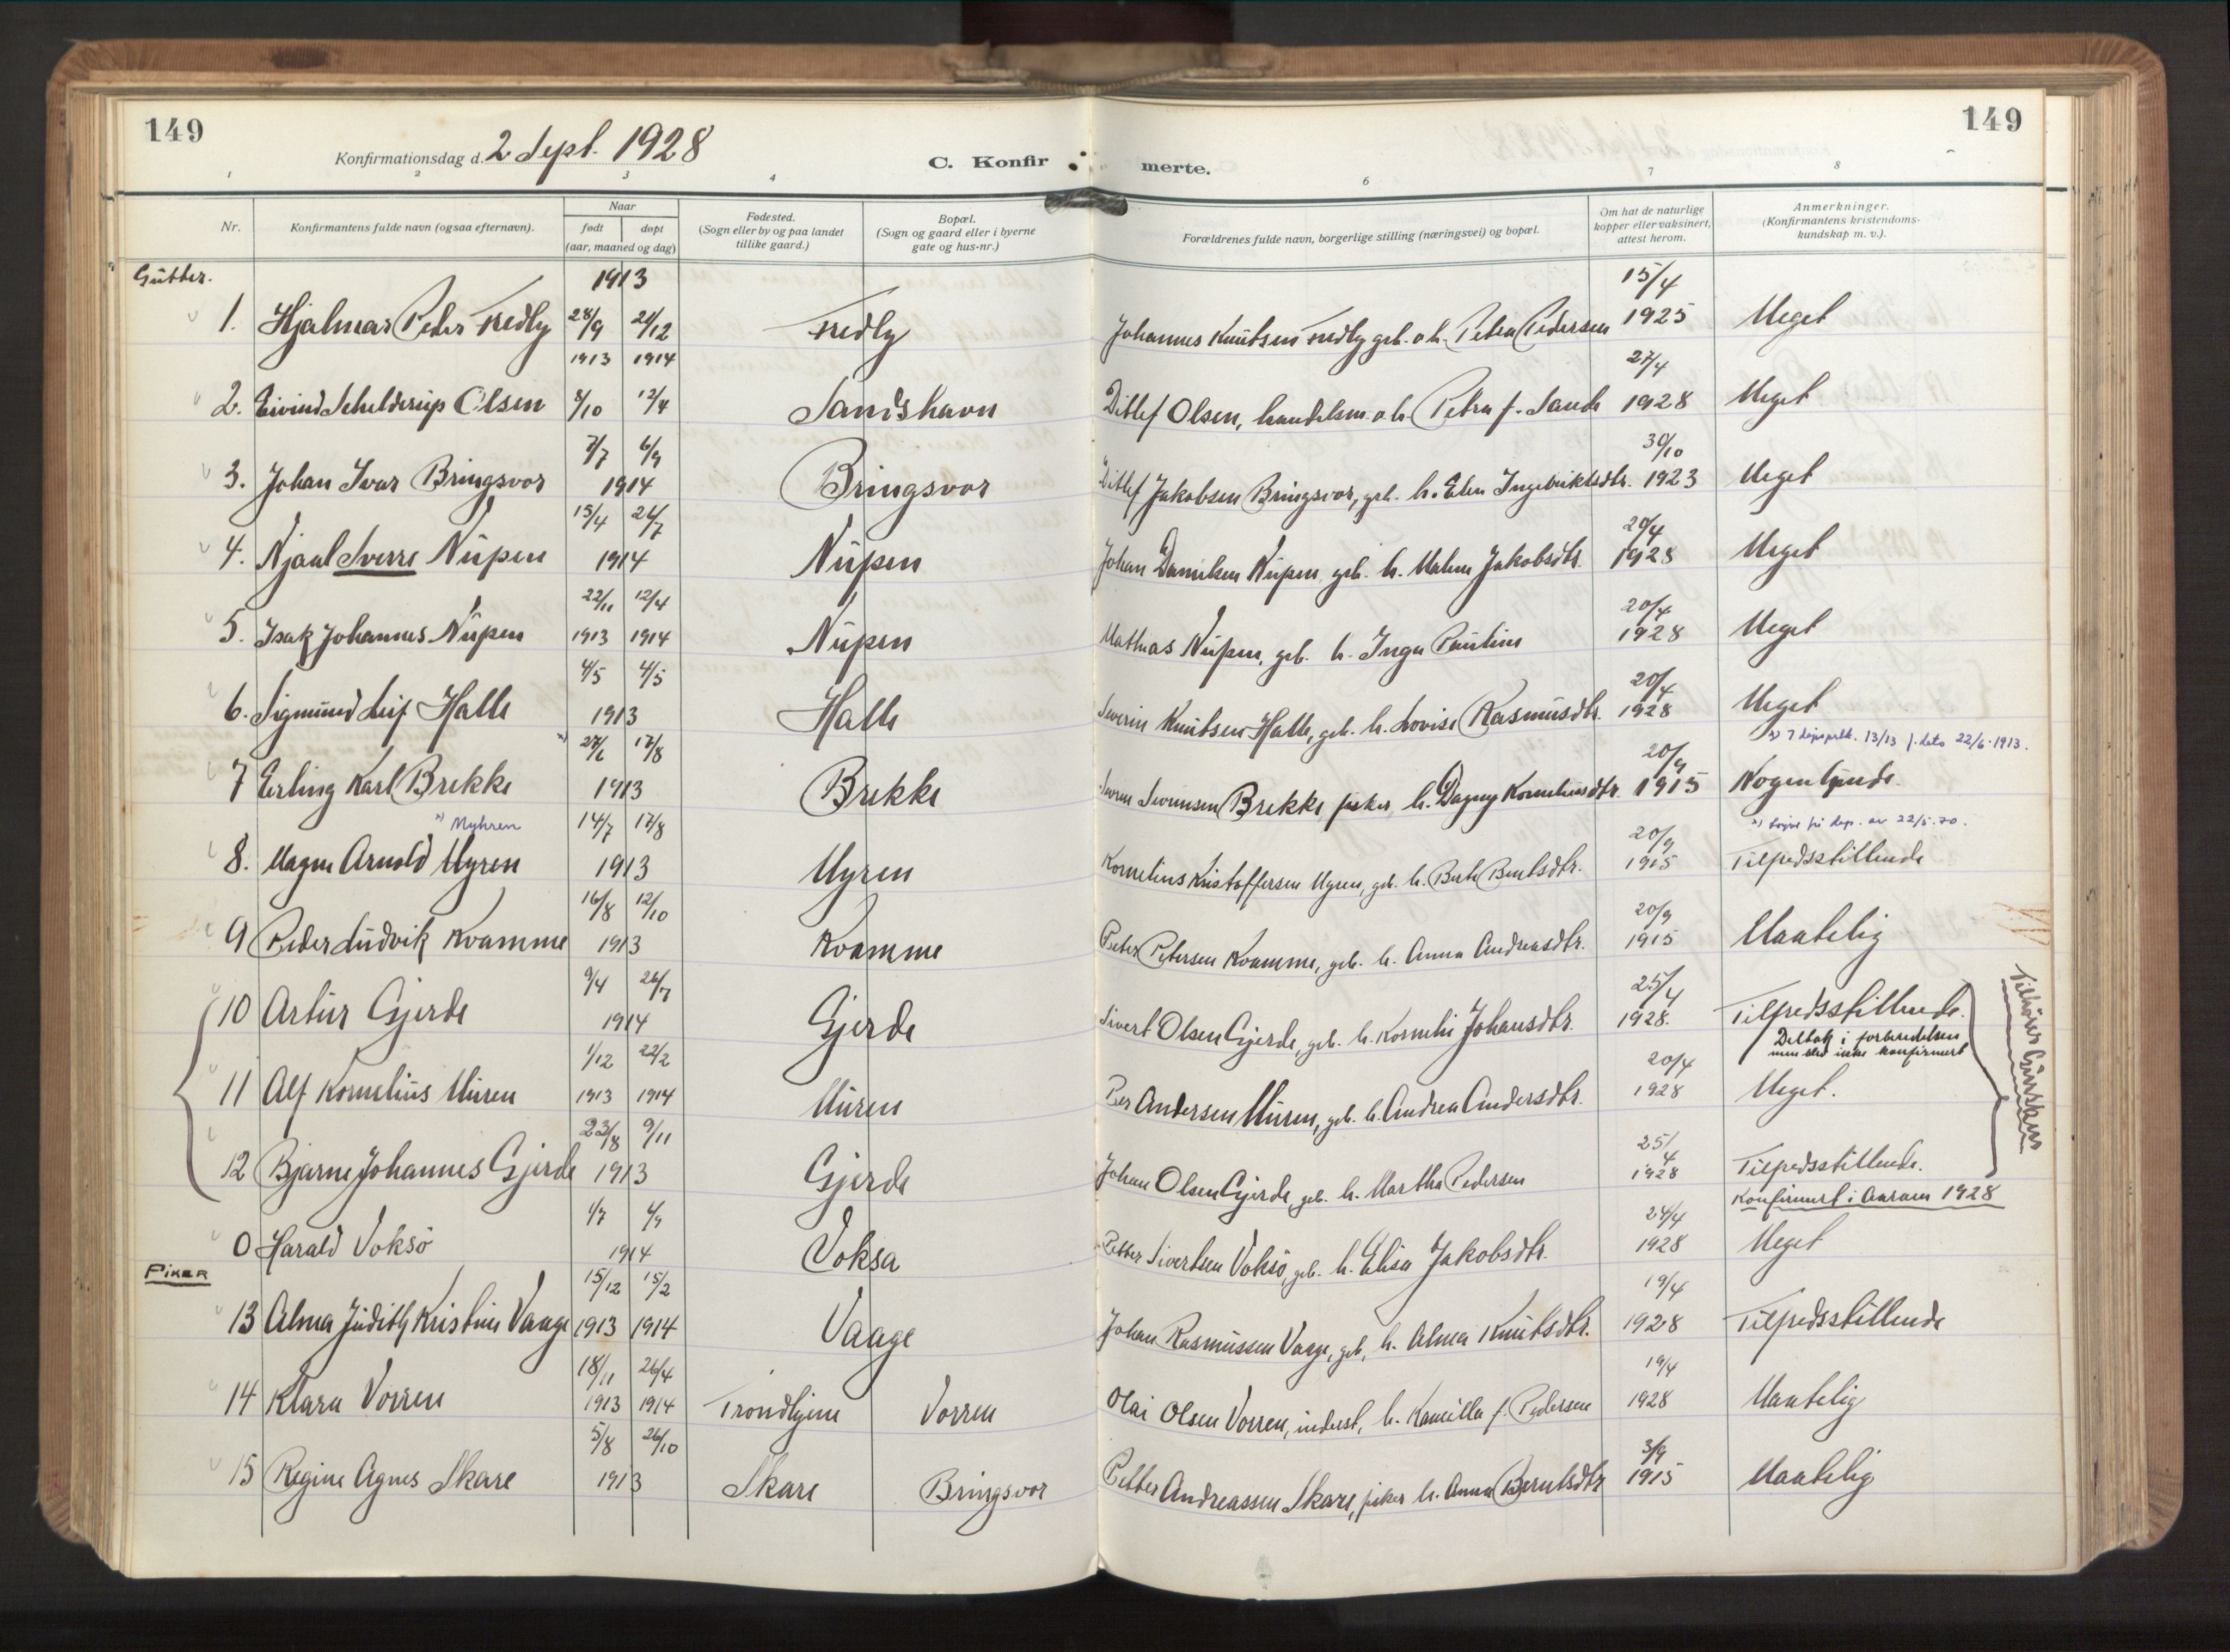 149
149
Konfirmationsdag d. 2 Sept. 1928
C. Konfir merte.
1 2 3 4 6 7 8
Nr.
Konfirmantens fulde navn (ogsaa efternavn).
Naar
født døpt
(aar, maaned og dag)
Fødested.
(Sogn eller by og paa landet
tillike gaard.)
Bopæl.
(Sogn og gaard eller i byerne
gate og hus-nr.)
Forældrenes fulde navn, borgerlige stilling (næringsvei) og bopæl.
Om hat de naturlige
kopper eller vaksinert,
attest herom.
Anmerkninger.
(Konfirmantens kristendoms-
kundskap m. v.).
Gutter.
1913 15/4
1. Hjalmar Peder Fredly 28/9 21/12 Fredly Johannes Knutsen Fredly grb. o h. Petra Pedersen 1925 Meget
1913 1914 27/4
2. Eivind Schelderup Olsen 8/10 12/4 Sandshavn Ditlef Olsen, handelsm. o h. Petra f. Sande 1928 Meget
7/7 6/9 30/10
3. Johan Ivar Bringsvor 1914 Bringsvor Ditlef Jakobsen Bringsvor, grb. h. Elen Ingebriktsdtr. 1923 Meget
15/4 26/7 20/4
4. Njaal Sverre Nupen 1914 Nupen Johan Danielsen Nupen grb. h. Malene Jakobsdtr. 1928 Meget
22/11 12/4 20/4
5. Isak Johannes Nupen 1913 1914 Nupen Mathias Nupen, grb. h. Inga Pauline 1928 Meget
4/5 4/5 20/4
6. Sigmund Leif Halle 1913 Halle Severin Knutsen Halle, grb. h. Lovise Rasmusdtr. 1928 Meget
x) 27/6 17/8 20/9 x) 7 13/13 f. dato 22/6-1913.
7 Erling Karl Brekke 1913 Brekke Severin Severinsen Brekke fisker h. Dagny Korneliusdtr. 1915 Nogenlunde.
x) Myhren 14/7 17/8 20/9 x) av 22/5.70.
8. Magne Arnold Myren 1913 Myren Kornelius Kristoffersen Myren, grb. h. Berte Berntsdtr. 1915 Tilfredsstillende
16/8 12/10 20/9
9 Peder Ludvik Kvamme 1913 Kvamme Peder Petersen Kvamme, grb. h. Anna Andreasdtr. 1915 Maatelig
9/4 26/7 25/4
10 Artur Gjerde 1914 Gjerde Sivert Olsen Gjerde, grb. h. Kornelie Johansdtr. 1928. Tilfredsstillende.
Deltok i forberedelsen
men blev ikke konfirmert
1/12 22/2 20/4
11 Alf Kornelius Muren 1913 1914 Muren Per Andersen Muren, grb. h. Andrea Andersdtr. 1928 Meget.
23/8 9/11 25/4
12 Bjarne Johannes Gjerde 1913 Gjerde Johan Olsen Gjerde grb. h. Martha Pedersen 1928 Tilfredsstillende.
Tilhører Gurskens
Konfirmert i Aaram 1928
1/7 4/9 24/4
0 Harald Voksö 1914 Voksa Petter Sivertsen Voksö, grb. h. Elisa Jakobsdtr. 1928 Meget
PIKER
15/12 15/2 19/4
13 Alma Judith Kristine Vaage 1913 1914 Vaage Johan Rasmussen Vaage, grb, h. Alma Knutsdtr. 1928 Tilfredsstillende
18/11 26/4 19/4
14 Klara Vorren 1913 1914 Trondhjem Vorren Olai Olsen Vorren, inderst, h. Kamilla f. Pedersen 1928 Maatelig
5/8 26/10 3/9
15 Regine Agnes Skare 1913 Skare Bringsvor Petter Andreassen Skare, fisker h. Anna Berntsdtr 1915 Maatelig